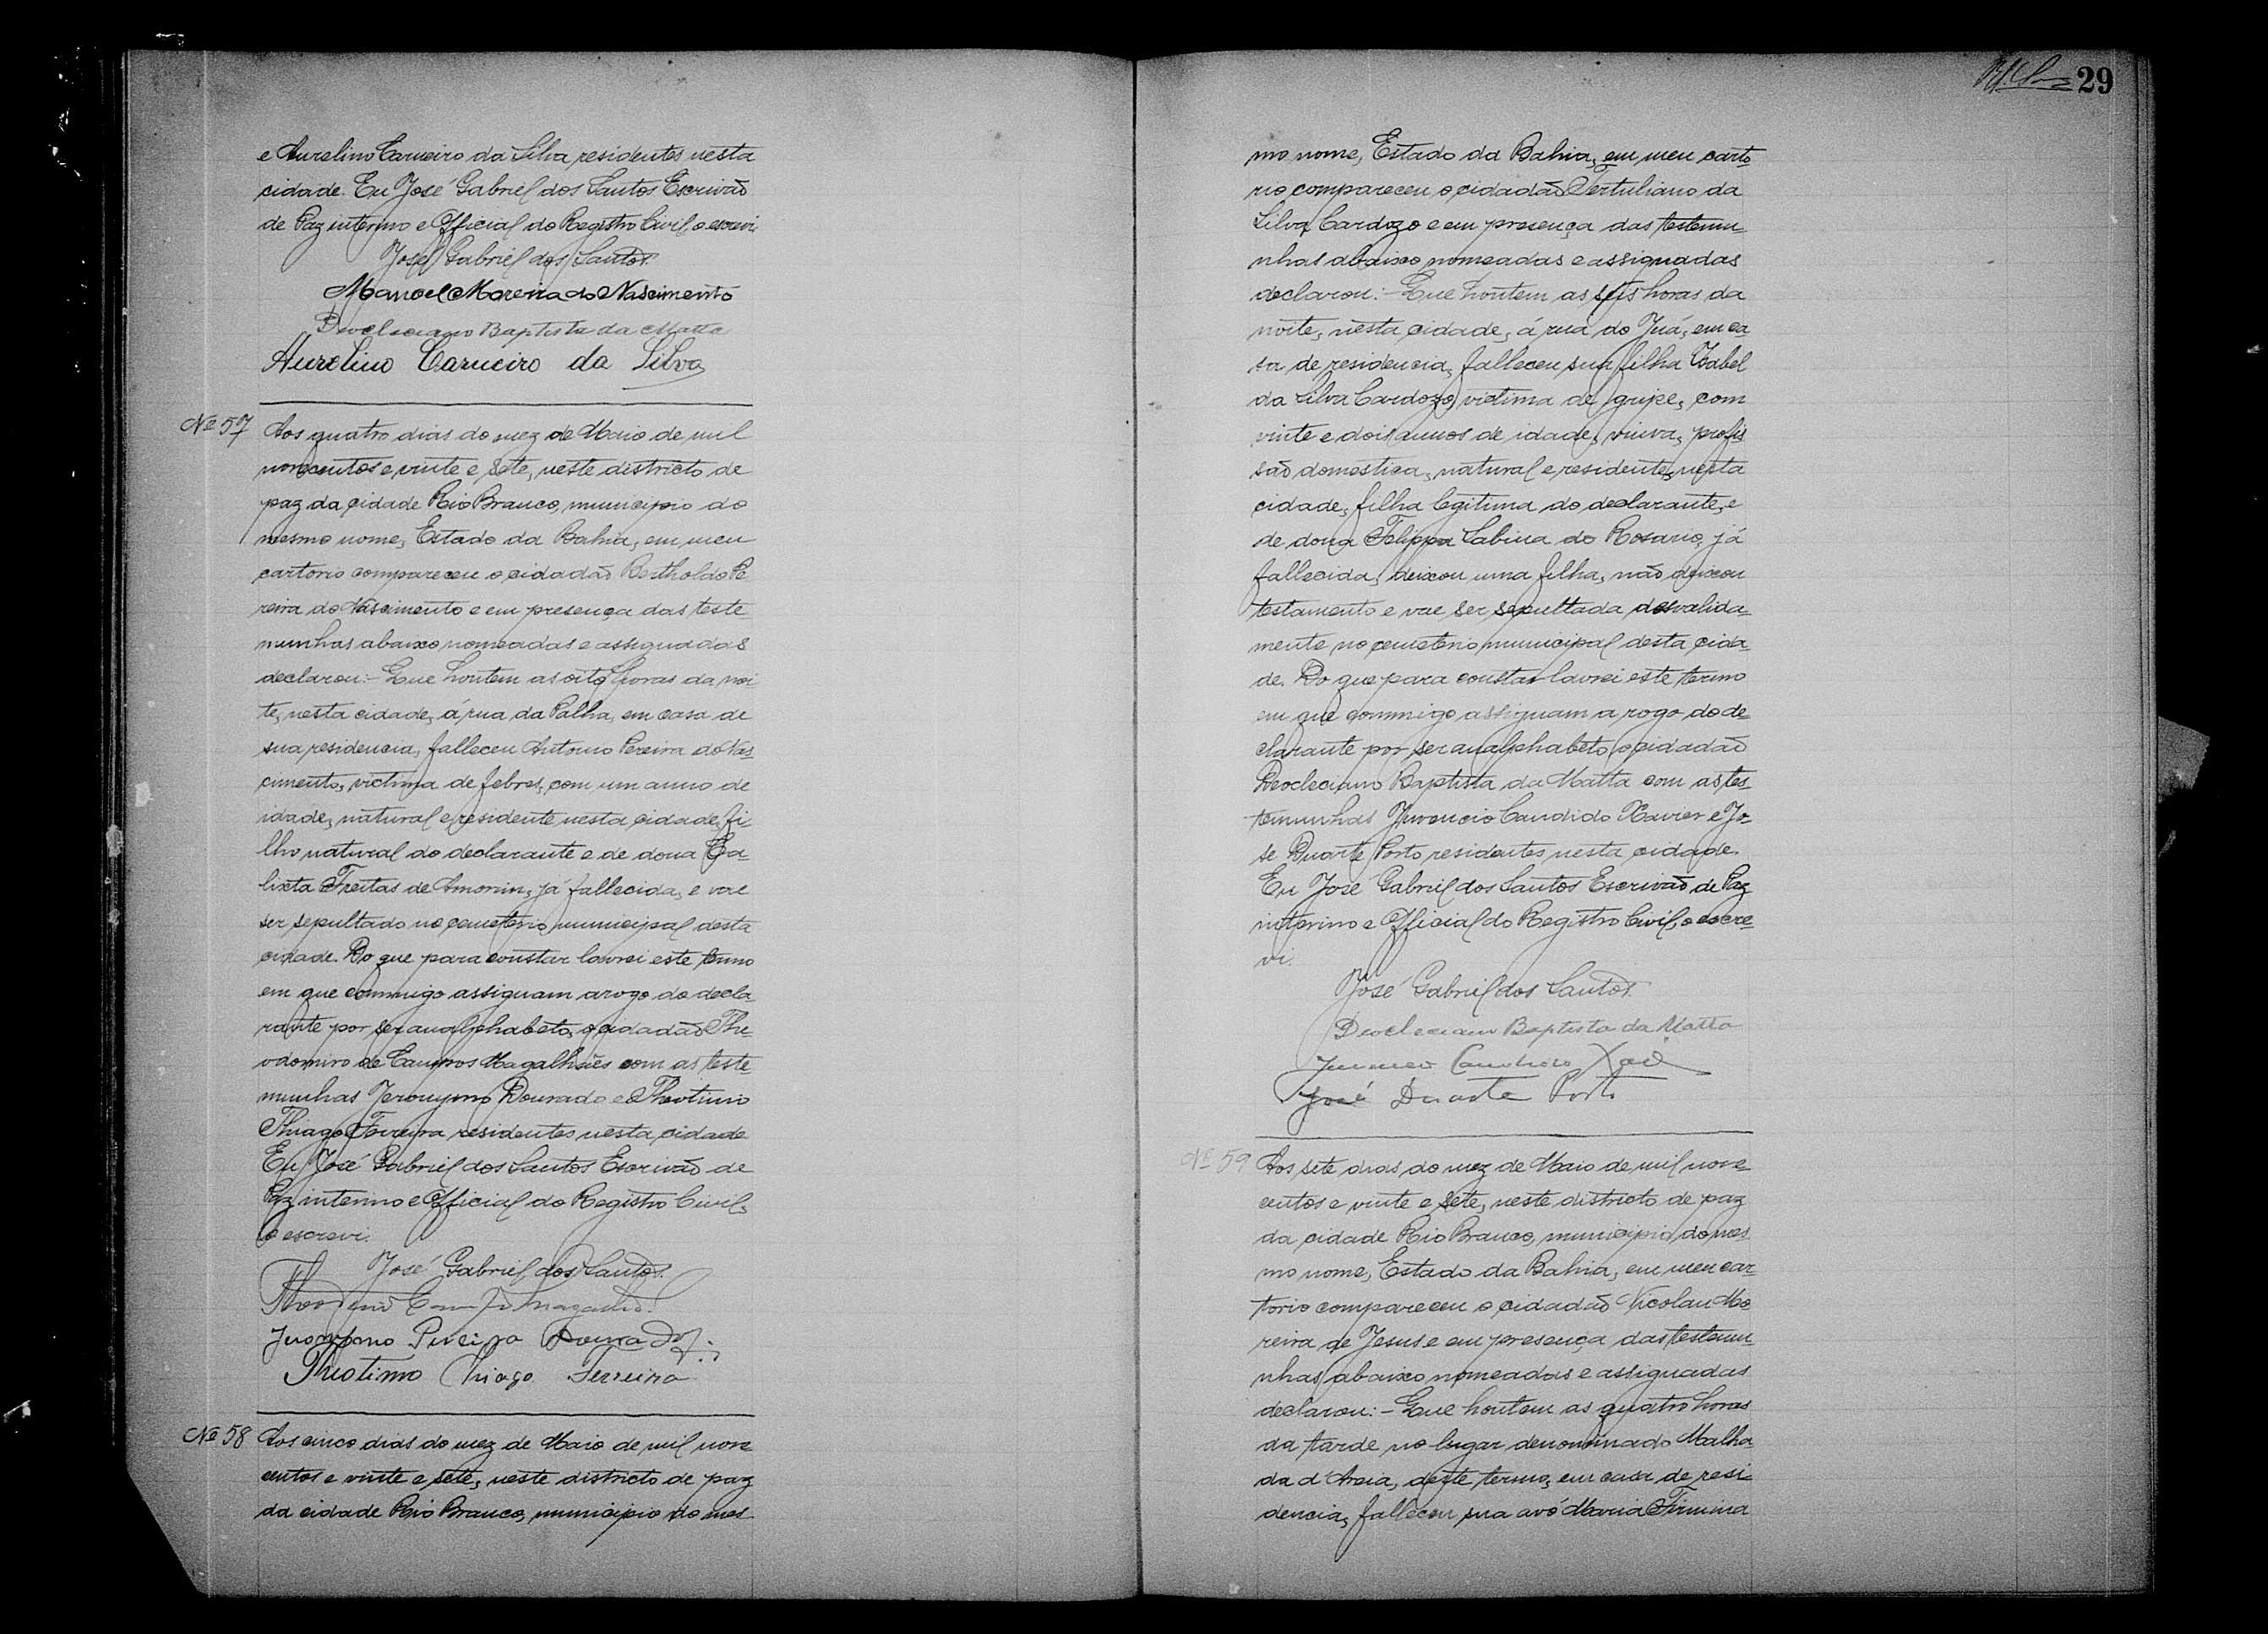 e Aurelino Carneiro da Silva, residentes nesta
cidade. Eu José Gabriel dos Santos Escrivão
de Paz interino e Official do Registro Civil, o escrevi.
José Gabriel dos Santos.
Manoel Moreira do Nascimento
Deocleciano Baptista da Matta
Aurelino Carneiro da Silva
Nº 57 Aos quatro dias do mez de Maio de mil
novecentos e vinte e sete, neste districto de
paz da cidade Rio Branco, municipio do
mesmo nome, Estado da Bahia, em meu
cartorio compareceu o cidadão Bertholdo Pe
reira do Nascimento e em presença das teste-
munhas abaixo nomeadas e assignadas
declarou:- Que hontem as oito horas da noi
te, nesta cidade, á rua da Palha, em casa de
sua residencia, falleceu Antonio Pereira do Nas-
cimento, victima de febres, com um anno de
idade, natural e residente nesta cidade, fi-
lho natural do declarante e de dona Ca-
lixta Freitas de Amorim, já fallecida, e vae
ser sepultado no cemeterio municipal desta
cidade. Do que para constar lavrei este termo
em que commigo assignam a rogo do decla-
rante por ser analphabeto, o cidadão The-
odomiro de Campos Magalhães com as teste-
munhas Jeronymo Dourado e Theotimo
Thiago Ferreira residentes nesta cidade
Eu José Gabriel dos Santos Escrivão de
Paz interino e Official do Registro Civil,
o escrevi.
José Gabriel dos Santos.
Jeronymo Pereira Dourado
Theotimo Thiago Ferreira
Nº 58 Aos cinco dias do mez de Maio de mil nove
centos e vinte e sete, neste districto de paz
da cidade Rio Branco, municipio do mes
29
mo nome, Estado da Bahia, em meu carto
rio compareceu o cidadão Tertuliano da
Silva Cardozo e em presença das testemu-
nhas abaixo nomeadas e assignadas
declarou:- Que hontem as seis horas da
noite, nesta cidade, á rua do Juá, em ca
sa de residencia, falleceu sua filha Izabel
da Silva Cardozo, victima de gripe, com
vinte e dois annos de idade, viuva, profis
são domestica, natural e residente, nesta
cidade, filha legitima do declarante, e
de dona Felippa Sabina do Rosario, já
fallecida, deixou uma filha, não deixou
testamento e vae ser sepultada desvalida-
mente no cemeterio municipal desta cida-
de. Do que para constar lavrei este termo
em que commigo assignam a rogo do de-
clarante por ser analphabeto, o cidadão
Deocleciano Baptista da Matta com as tes-
temunhas Juvencio Candido Xavier e Jo-
se Duarte Porto residentes nesta cidade.
Eu José Gabriel dos Santos Escrivão de Paz
interino e Official do Registro Civil, o escre-
vi.
José Gabriel dos Santos.
Deocleciano Baptista da Matta
José Duarte Porto
Nº 59 Aos sete dias do mez de Maio de mil nove
centos e vinte e sete, neste districto de paz
da cidade Rio Branco, municipio do mes
mo nome, Estado da Bahia, em meu car-
torio compareceu o cidadão Nicolau Mo
reira de Jesus e em presença das testemu
nhas abaixo nomeadas e assignadas
declarou:- Que hontem as quatro horas
da tarde no lugar denominado Malha
da d'Areia, deste termo, em casa de resi-
dencia, falleceu sua avó Maria Firmina